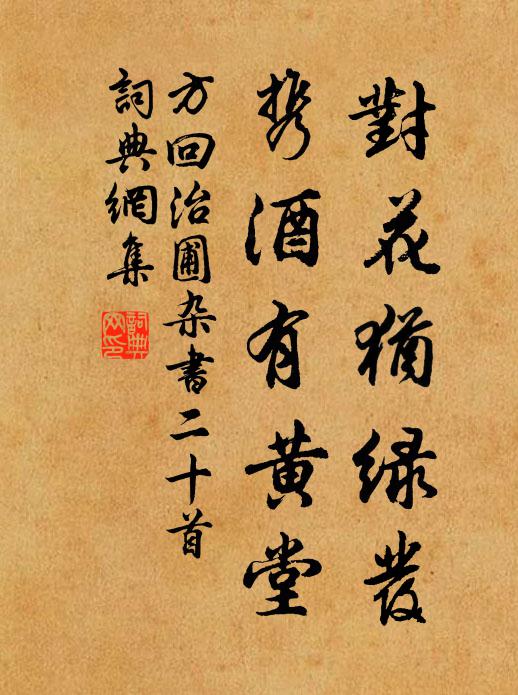 對花猶緑發
携酒有黄堂
方回治圃杂書二十首
詞典網集
詞典網印